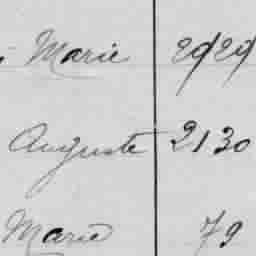 Marie 2929
Auguste 2130
Marie 79